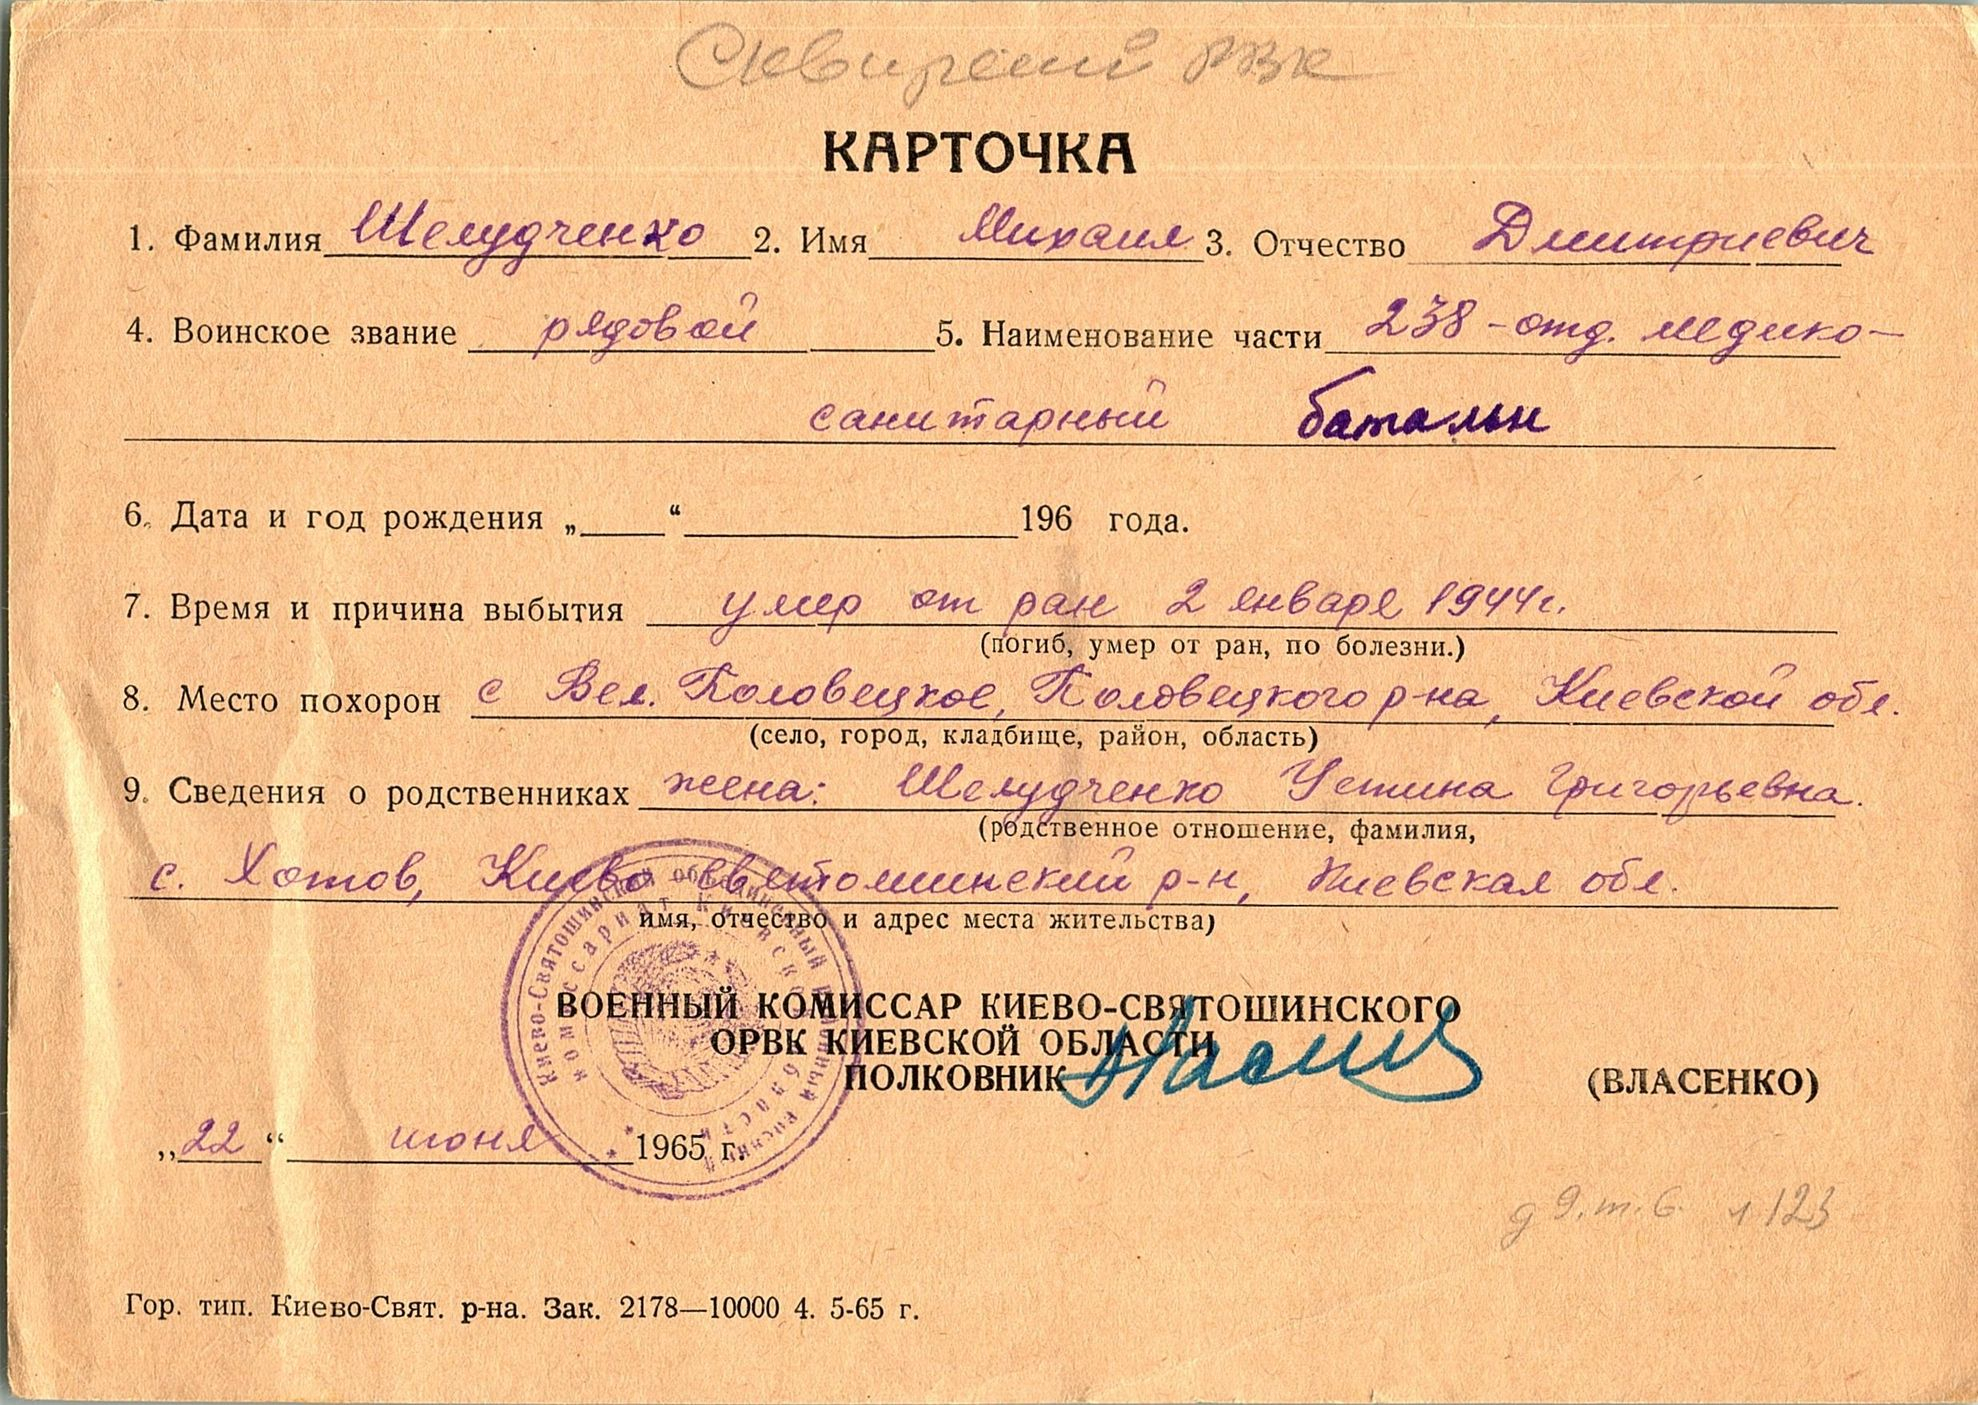 Сквирский РВК
КАРТОЧКА
1. Фамилия Шелудченко 2. Имя Михаил 3. Отчество Дмитриевич
4. Воинское звание рядовой 5. Наименование части 238 - отд. медико-
санитарный батальн
6. Дата и год рождения „ “ 196 года.
7. Время и причина выбытия умер от ран 2 января 1944г.
(погиб, умер от ран, по болезни.)
8. Место похорон с Вел. Половецкое, Половецкого р-на, Киевской обл.
(село, город, кладбище, район, область)
9. Сведения о родственниках жена: Шелудченко Устина Григорьевна.
(родственное отношение, фамилия,
с. Хотов, Киево-Святошинский р-н, Киевская обл.
имя, отчество и адрес места жительства)
Киево-Святошинский объединенный районный военный
комиссариат Киевской области
ВОЕННЫЙ КОМИССАР КИЕВО-СВЯТОШИНСКОГО
ОРВК КИЕВСКОЙ ОБЛАСТИ
ПОЛКОВНИК (ВЛАСЕНКО)
„22“ июня 1965 г.
д 9. т. 6. л 123
Гор. тип. Киево-Свят. р-на. Зак. 2178—10000 4. 5-65 г.